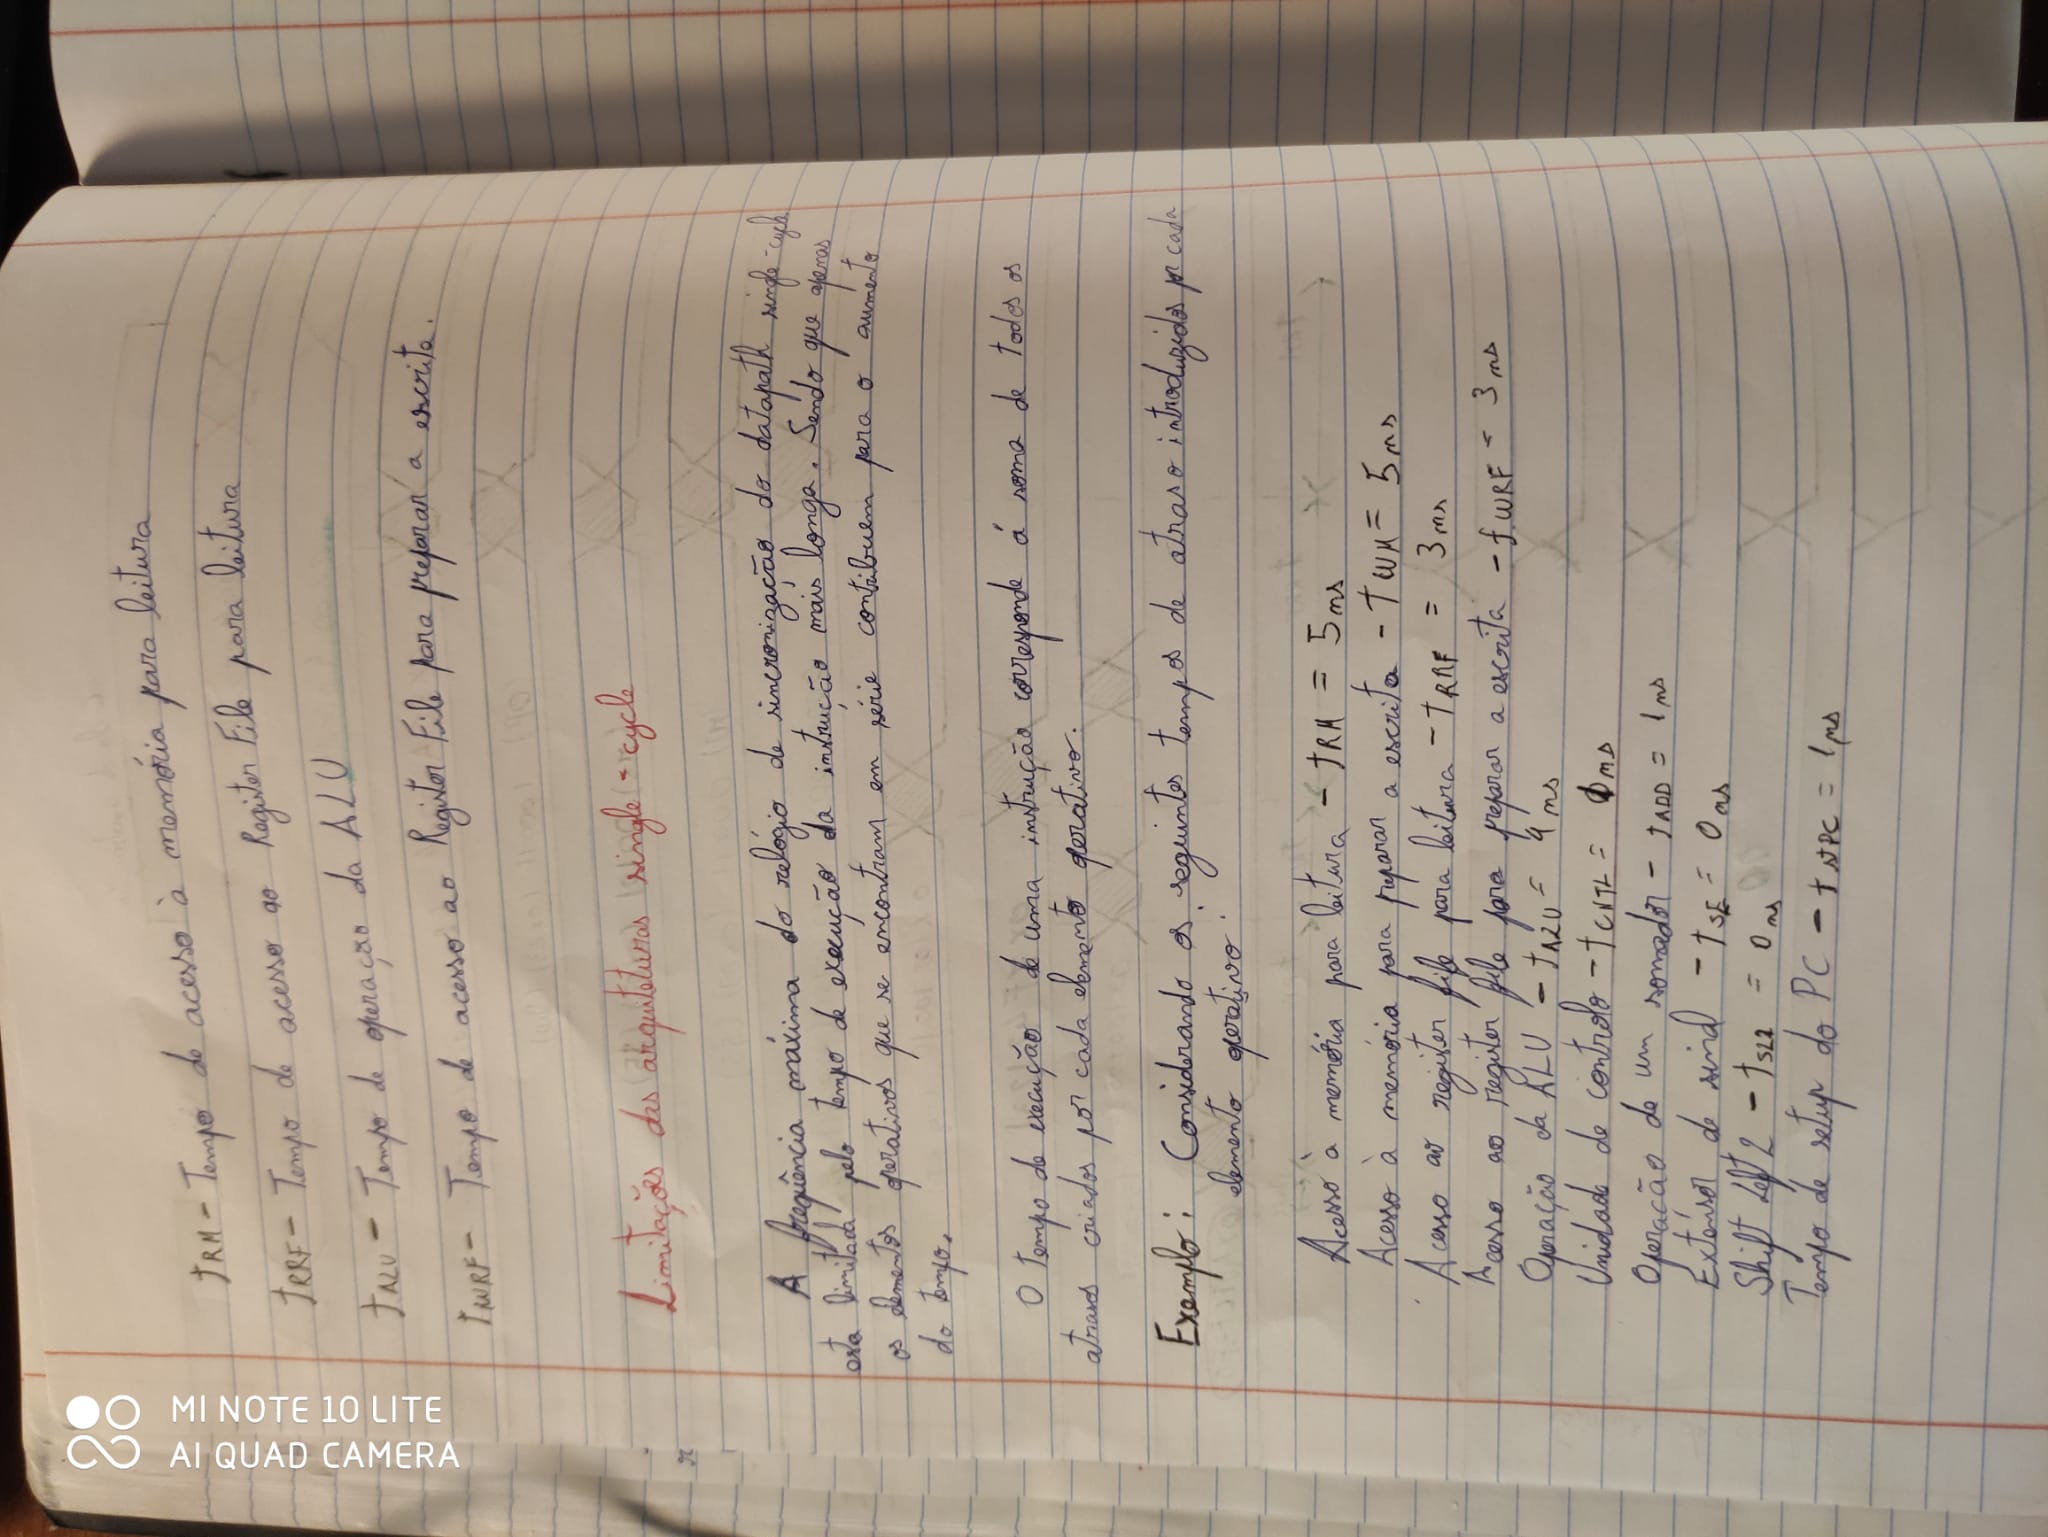 tRM - Tempo de acesso à memória para leitura
tRRF - Tempo de acesso ao Register File para leitura
tALU - Tempo de operação da ALU
tWRF - Tempo de acesso ao Register File para preparar a escrita.
Limitações das arquiteturas single-cycle
A frequência máxima do relógio de sincronização do datapath single-cycle
esta limitada pelo tempo de execução da instrução mais longa. Sendo que apenas
os elementos operativos que se encontram em série contribuem para o aumento
do tempo.
O tempo de execução de uma instrução corresponde á soma de todos os
atrasos criados por cada elemento operativo.
Exemplo: Considerando os seguintes tempos de atraso introduzidos por cada
elemento operativo:
Acesso à memória para leitura - tRM = 5ns
Acesso à memória para preparar a escrita - tWM = 5ns
Acesso ao register file para leitura - tRRF = 3ns
Acesso ao register file para preparar a escrita - tWRF = 3ns
Operação da ALU - tALU = 4ns
Unidade de controlo - tCNTL = ns
Operação de um somador - tADD = 1ns
Extensor de sinal - tSE = 0ns
Shift Left 2 - tSL2 = 0ns
Tempo de setup do PC - tstPC = 1ns
MI NOTE 10 LITE
AI QUAD CAMERA